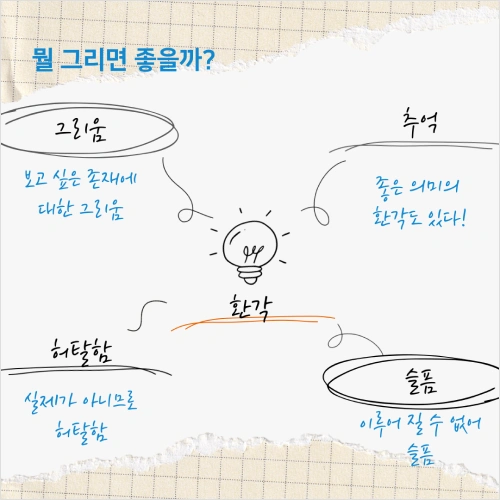 뭘 그리면 좋을까?
그리움
보고 싶은 존재에
대한 그리움
추억
좋은 의미의
환각도 있다!
환각
허탈함
실제가 아니므로
허탈함
슬픔
이루어 질 수 없어
슬픔